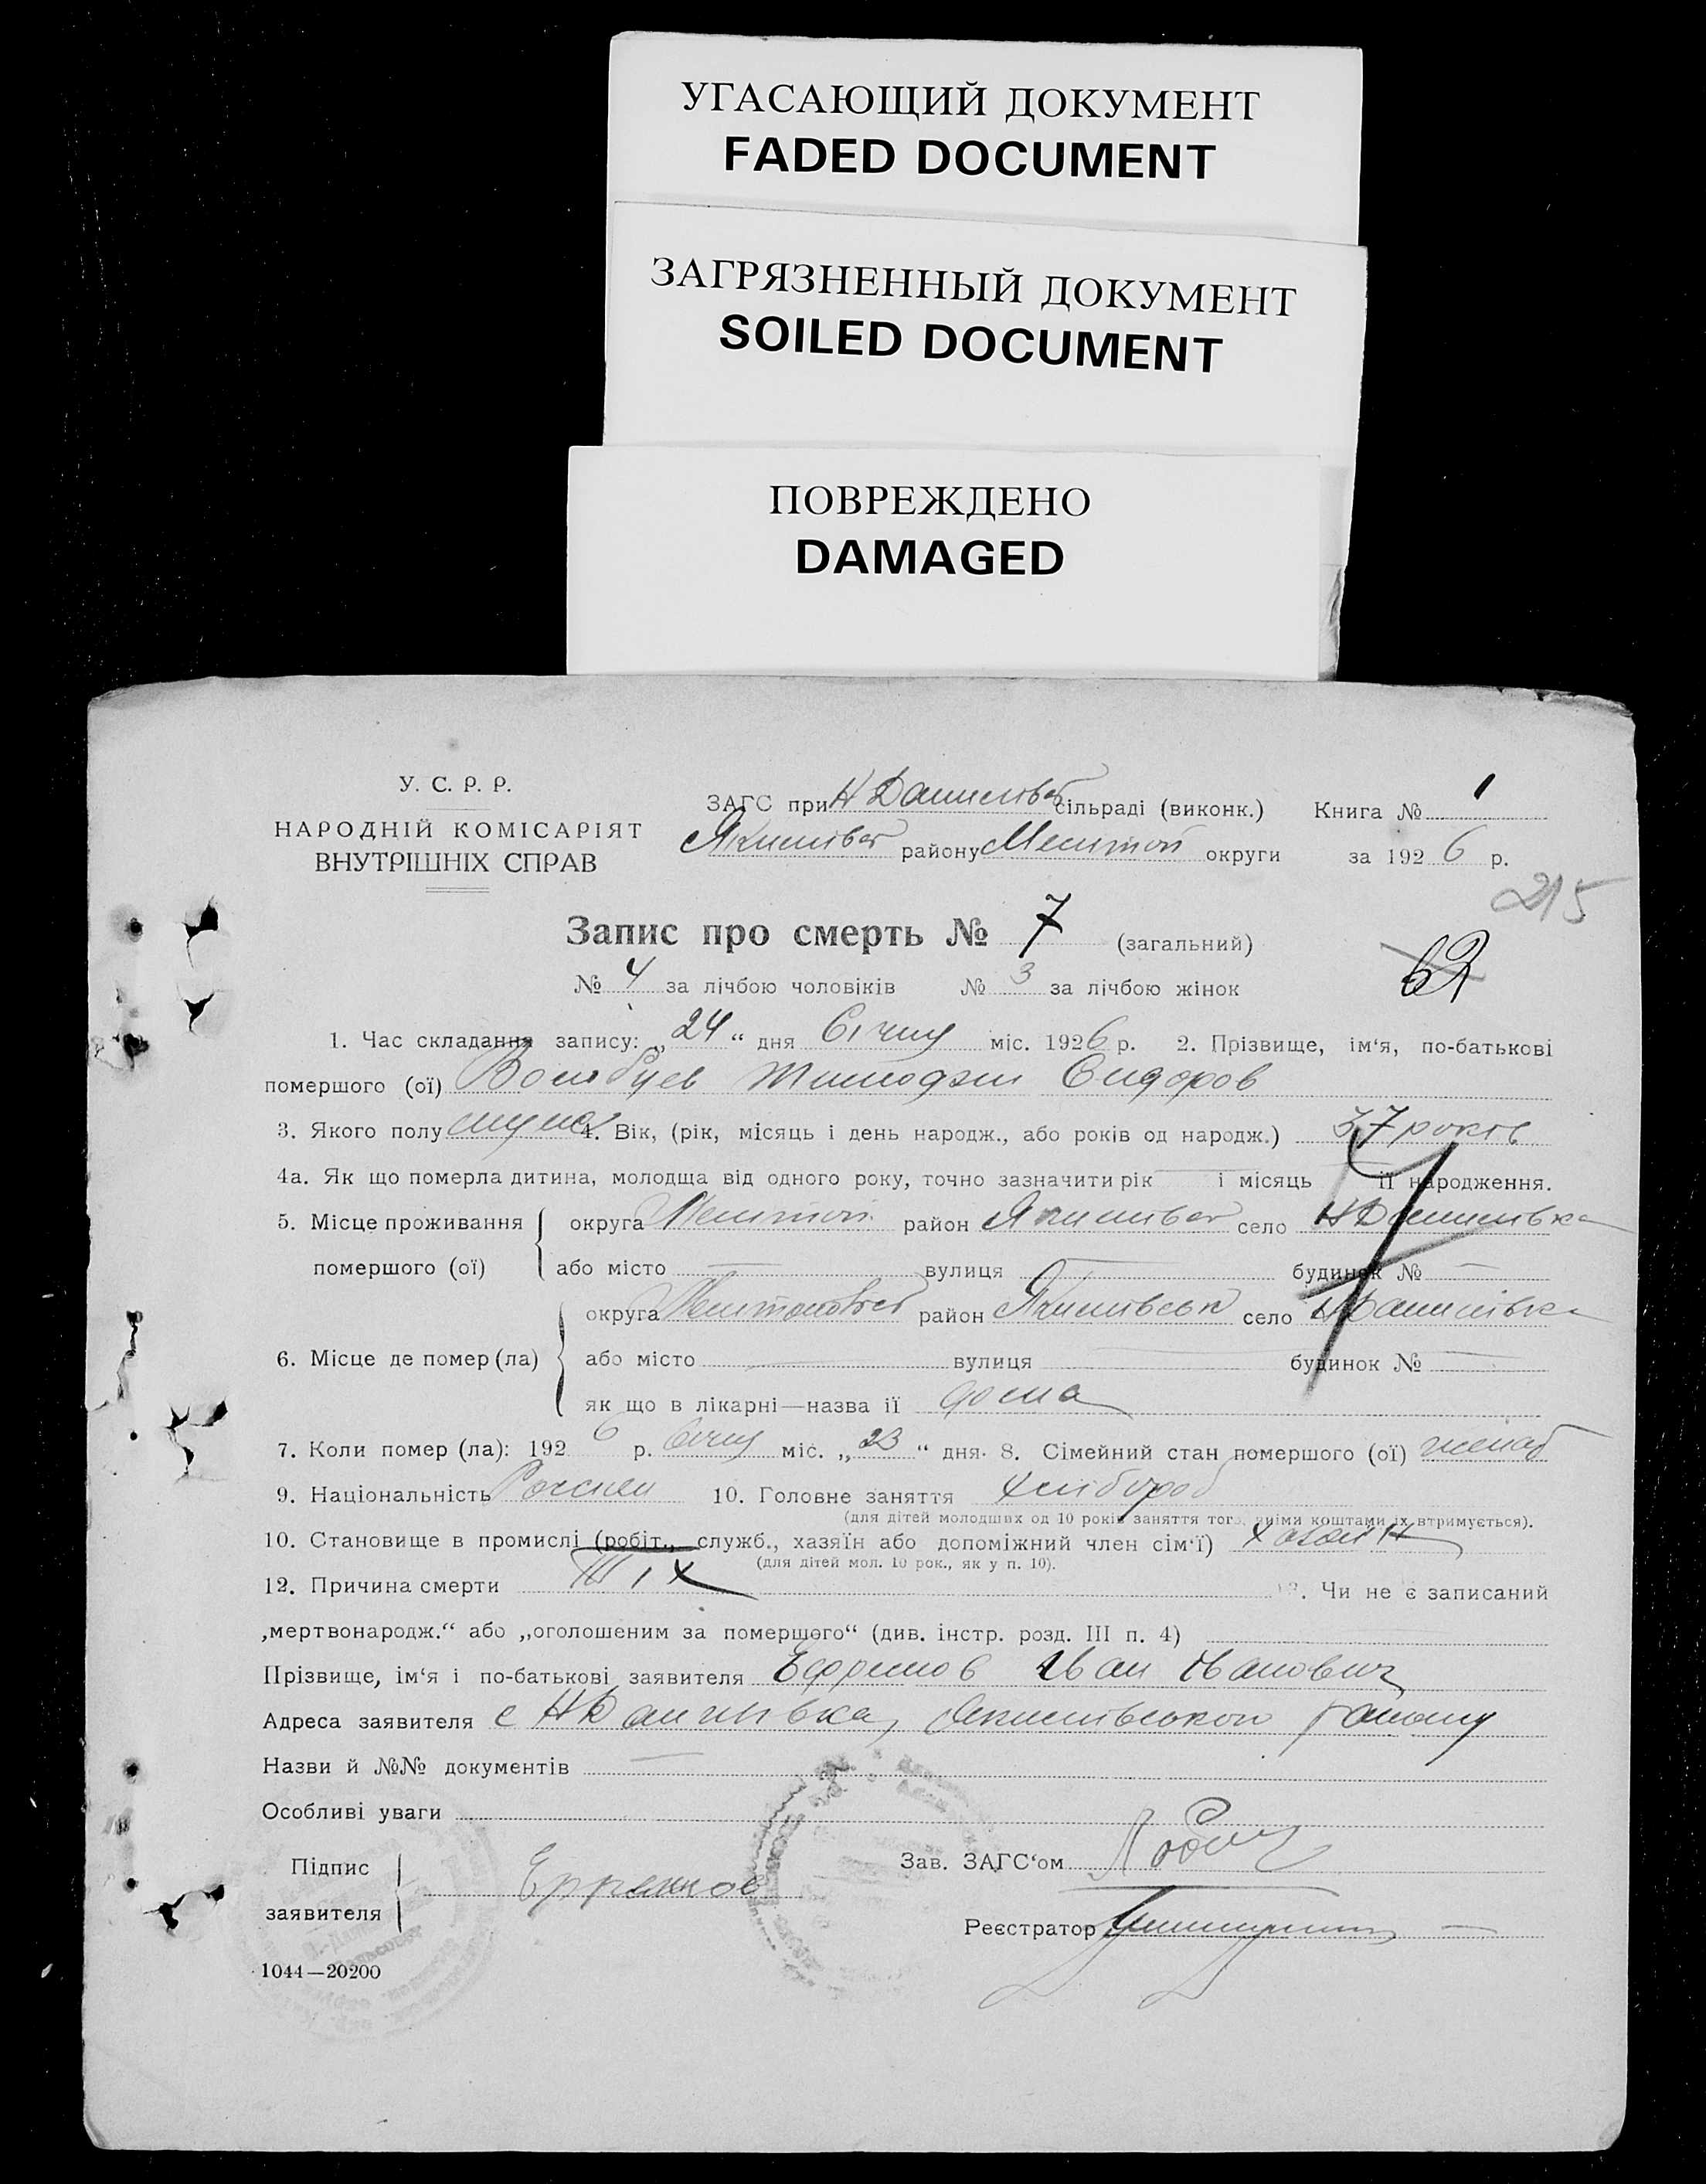 УГАСАЮЩИЙ ДОКУМЕНТ
FADED DOCUMENT
ЗАГРЯЗНЕННЫЙ ДОКУМЕНТ
SOILED DOCUMENT
ПОВРЕЖДЕНО
DAMAGED
У. С. Р. Р.
НАРОДНІЙ КОМІСАРІЯТ
ВНУТРІШНІХ СПРАВ
ЗАГС при сільраді (виконк.) Книга № 1
району округи за 1926 р.
215
Запис про смерть № 7 (загальний)
62
№ 4 за лічбою чоловіків № 3 за лічбою жінок
1. Час складання запису: „24“ дня Січня міс. 1926 р. 2. Прізвище, ім‘я, по-батькові
помершого (ої) Сидоров
3. Якого полу 4. Вік, (рік, місяць і день народж., або років од народж.) 37 років
4а. Як що померла дитина, молодща від одного року, точно зазначити рік і місяць її народження.
5. Місце проживання помершого (ої) округа район село Н Данилівка
або місто — вулиця — будинок № —
6. Місце де помер (ла) округа район село Н Данилівка
або місто — вулиця — будинок № —
як що в лікарні—назва її дома
7. Коли помер (ла): 1926 р. Січня міс. „23“ дня. 8. Сімейний стан помершого (ої) женат
9. Національність 10. Головне заняття Хлібороб
(для дітей молодших од 10 років заняття того, чиїми коштами їх втримується).
10. Становище в промислі (робіт., служб., хазяїн або допоміжний член сім‘ї) хазаїн
(для дітей мол. 10 рок., як у п. 10).
12. Причина смерти . Чи не є записаний
„мертвонародж.“ або „оголошеним за померщого“ (див. інстр. розд. III п. 4)
Прізвище, ім‘я і по-батькові заявителя Ефремов Иван Иванович
Адреса заявителя с НДанилівка, Якимівського району
Назви й №№ документів —
Особливі уваги
Підпис заявителя Ефремов
Зав. ЗАГС‘ом
Реєстратор
1044—20200